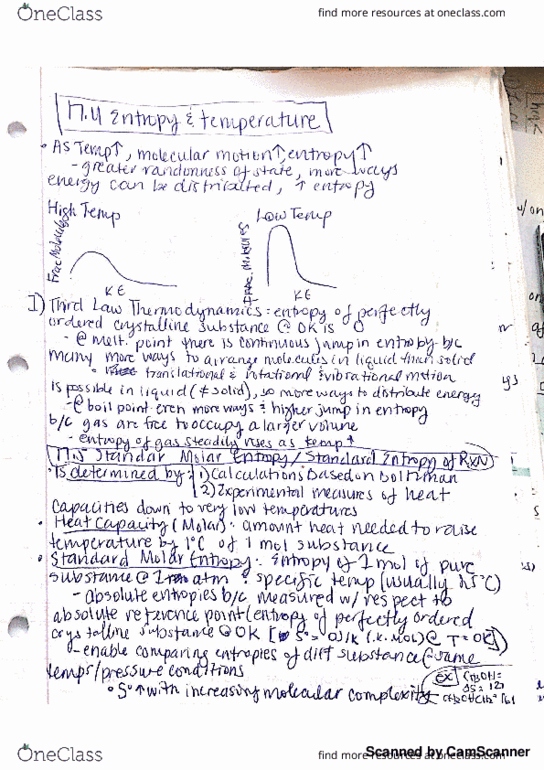 OneClass
find more resources at oneclass.com
17.4 Entropy & temperature
• As Temp↑, molecular motion↑, entropy↑
- greater randomness of state, more ways
energy can be distributed, ↑ entropy
High Temp
Low Temp
Frac Molecules
Frac. Molecules
KE
KE
I) Third Law Thermodynamics: entropy of perfectly
ordered crystalline substance @ 0K is 0
- @ melt. point there is continuous jump in entropy b/c
many more ways to arrange molecules in liquid than solid
• translational & rotational & vibrational motion
is possible in liquid (≠ solid), so more ways to distribute energy
- @ boil point even more ways & higher jump in entropy
b/c gas are free to occupy a larger volume
- entropy of gas steadily rises as temp↑
17.5 Standar Molar Entropy/Standard Entropy of RXN
• Is determined by: 1) Calculations Based on boltzman
2) Experimental measures of heat
capacities down to very low temperatures
• Heat Capacity (Molar): amount heat needed to raise
temperature by 1°C of 1 mol substance
• Standard Molar Entropy: entropy of 1 mol of pure
substance @ 1 atm & specific temp (usually 25°C)
- absolute entropies b/c measured w/ respect to
absolute reference point (entropy of perfectly ordered
crystalline substance @ 0K [S° = 0J/(K·mol) @ T=0K])
- enable comparing entropies of diff substance same
temps/pressure conditions
• S°↑ with increasing molecular complexity
ex
Scanned by CamScanner
OneClass
find more resources at oneclass.com